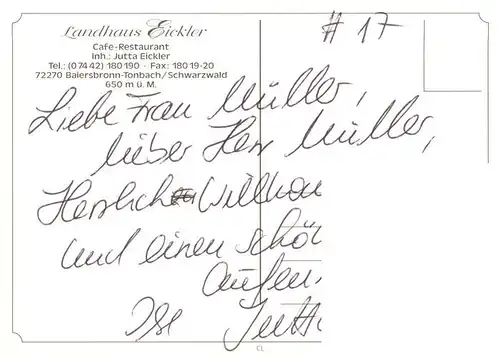 Landhaus Eickler
# 17
Cafe-Restaurant
Inh.: Jutta Eickler
Tel.: (0 74 42) 180 190 · Fax: 180 19-20
72270 Baiersbronn-Tonbach/Schwarzwald
650 m ü. M.
Liebe Frau Müller,
lieber Herr Müller,
Herzlich Willkom
und einen schö
Aufen
Jutta
CL